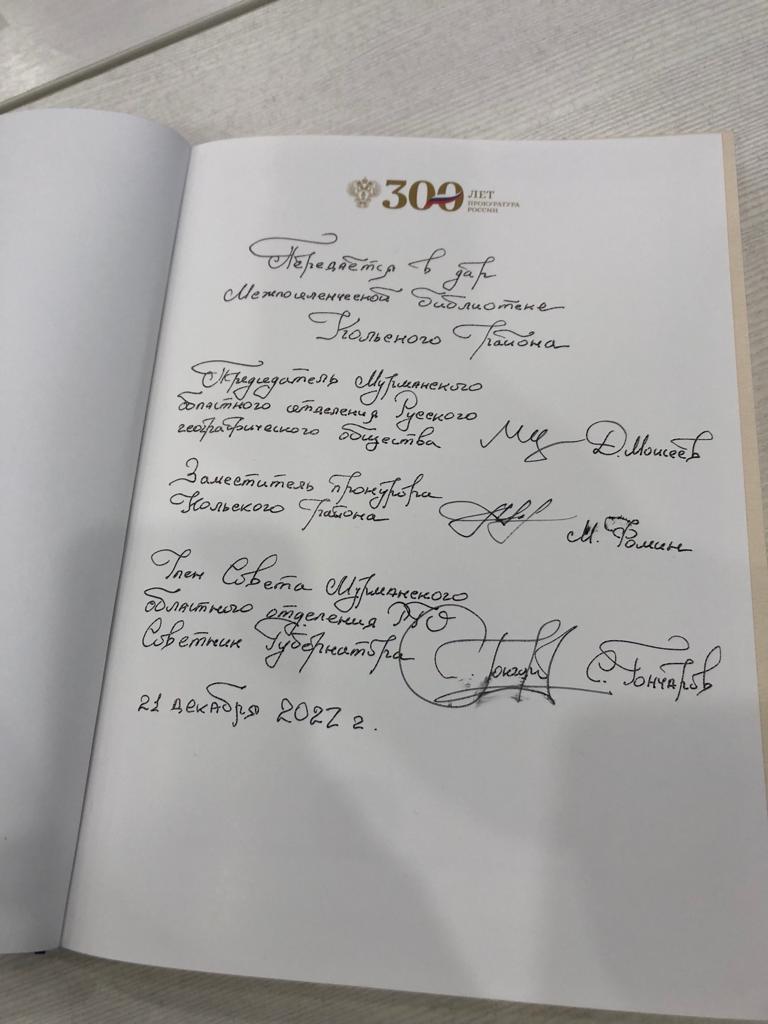 300 ЛЕТ
ПРОКУРАТУРА
РОССИИ
Передаётся в дар
Межпоселенческой библиотеке
Кольского района
Председатель Мурманского
областного отделения Русского
географического общества Д. Моисеев
Заместитель прокурора
Кольского района М. Фомин
Член Совета Мурманского
областного отделения РГО
Советник Губернатора С. Гончаров
21 декабря 2022 г.